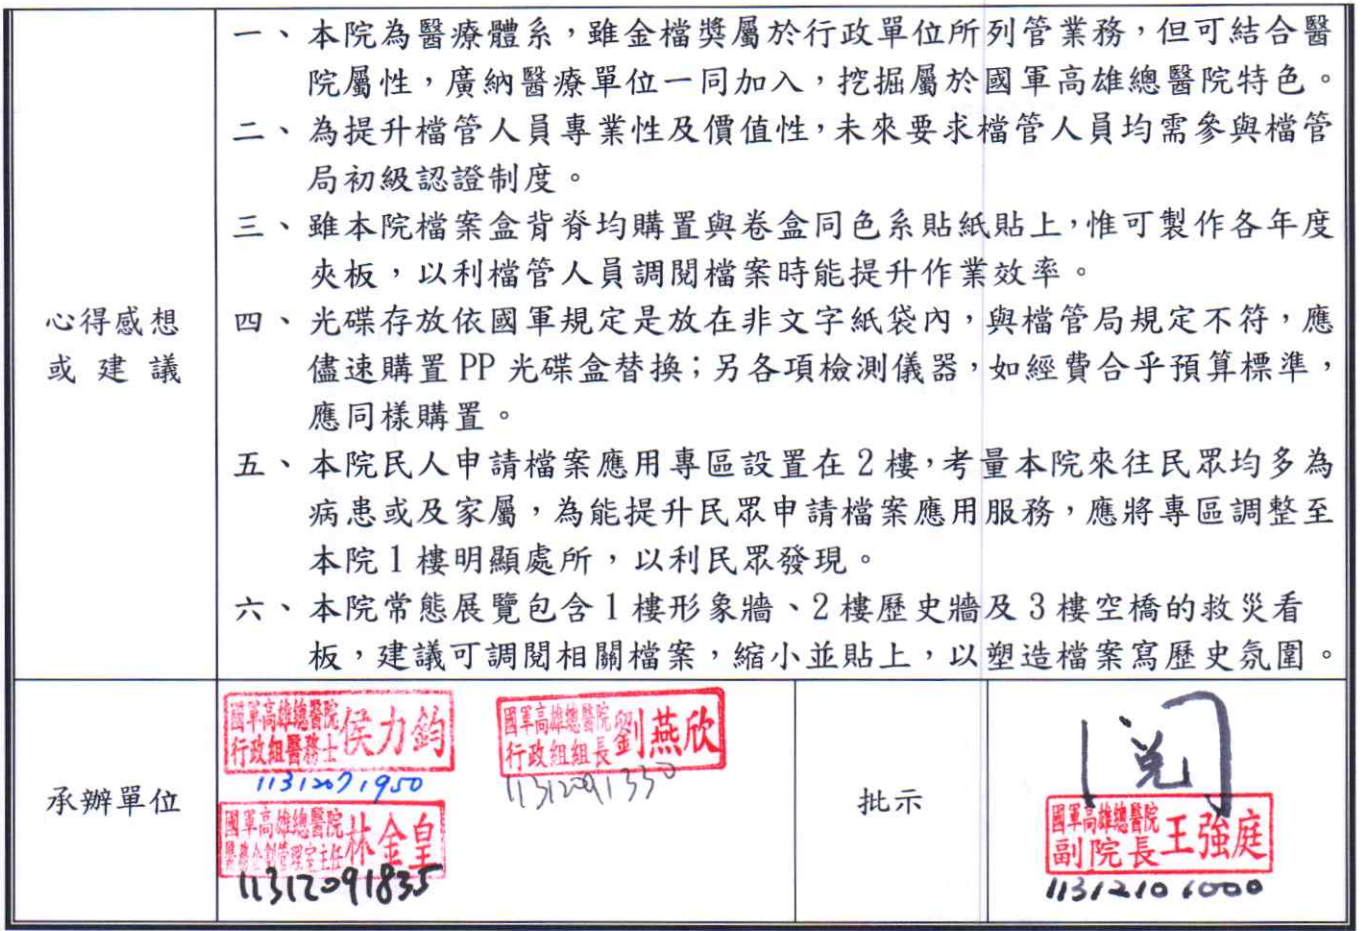 一、本院為醫療體系，雖金檔獎屬於行政單位所列管業務，但可結合醫
院屬性，廣納醫療單位一同加入，挖掘屬於國軍高雄總醫院特色。
二、為提升檔管人員專業性及價值性，未來要求檔管人員均需參與檔管
局初級認證制度。
三、雖本院檔案盒背脊均購置與卷盒同色系貼紙貼上，惟可製作各年度
夾板，以利檔管人員調閱檔案時能提升作業效率。
心得感想
或建議
四、光碟存放依國軍規定是放在非文字紙袋內，與檔管局規定不符，應
儘速購置 PP 光碟盒替換；另各項檢測儀器，如經費合乎預算標準，
應同樣購置。
五、本院民人申請檔案應用專區設置在 2 樓，考量本院來往民眾均多為
病患或及家屬，為能提升民眾申請檔案應用服務，應將專區調整至
本院 1 樓明顯處所，以利民眾發現。
六、本院常態展覽包含 1 樓形象牆、2 樓歷史牆及 3 樓空橋的救災看
板，建議可調閱相關檔案，縮小並貼上，以塑造檔案寫歷史氛圍。
承辦單位
國軍高雄總醫院
行政組醫務士
侯力鈞
11312071950
國軍高雄總醫院
醫務企劃管理室主任
林金皇
11312091835
國軍高雄總醫院
行政組組長
劉燕欣
11312091330
批示
閱
國軍高雄總醫院
副院長
王強庭
11312101000